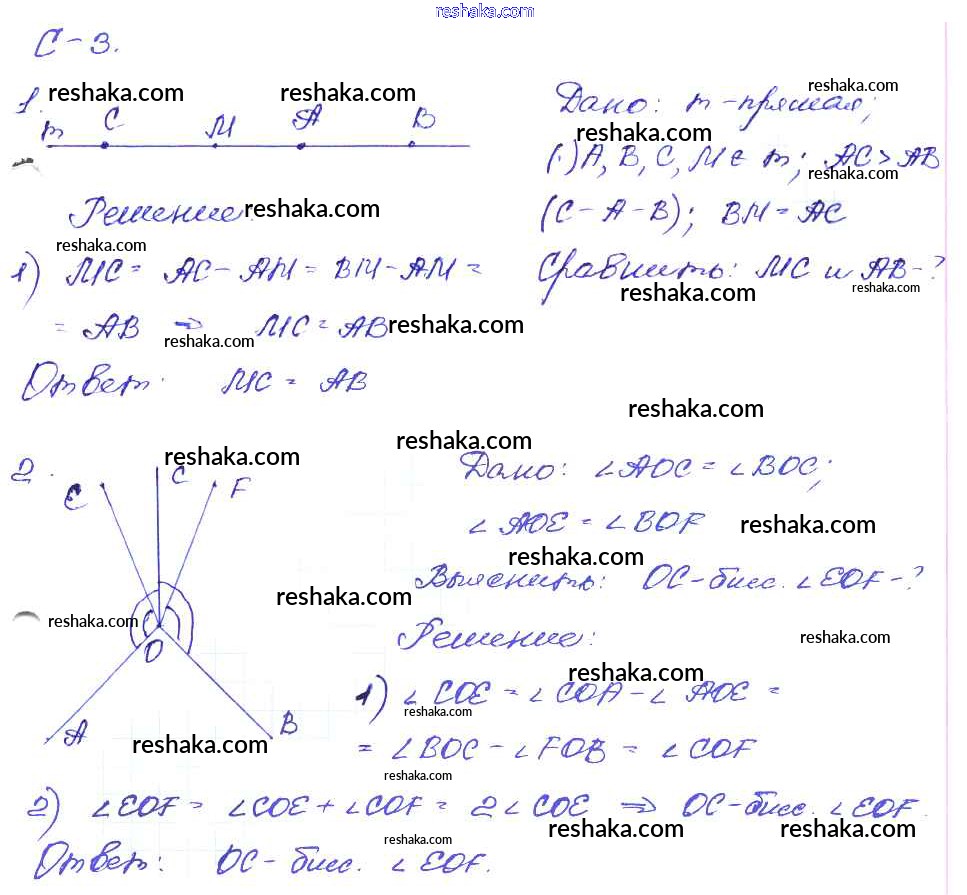 reshaka.com
С-3.
1. reshaka.com reshaka.com
m C M A B
Дано: m - прямая; reshaka.com
reshaka.com
(·) A, B, C, M ∈ m; AC > AB
reshaka.com
(C - A - B); BM = AC
Сравнить: MC и AB - ?
reshaka.com reshaka.com
Решение: reshaka.com
reshaka.com
1) MC = AC - AM = BM - AM =
= AB ⇒ MC = AB reshaka.com
reshaka.com
Ответ: MC = AB
reshaka.com
reshaka.com
2. reshaka.com
E C F
reshaka.com
reshaka.com
O
A B
reshaka.com
Дано: ∠AOC = ∠BOC;
∠AOE = ∠BOF reshaka.com
reshaka.com
Выяснить: OC - бисс. ∠EOF - ?
Решение: reshaka.com
reshaka.com
1) ∠COE = ∠COA - ∠AOE =
reshaka.com
= ∠BOC - ∠FOB = ∠COF
reshaka.com
2) ∠EOF = ∠COE + ∠COF = 2∠COE ⇒ OC - бисс. ∠EOF.
reshaka.com reshaka.com reshaka.com
Ответ: OC - бисс. ∠EOF.